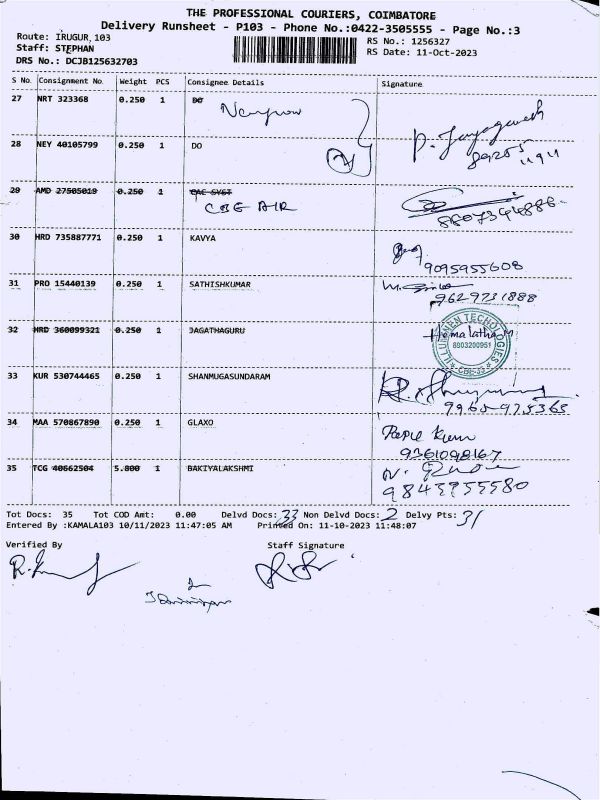 THE PROFESSIONAL COURIERS, COIMBATORE
Delivery Runsheet - P103 - Phone No.:0422-3505555 - Page No.:3
Route: IRUGUR,103
RS No.: 1256327
Staff: STEPHAN
RS Date: 11-Oct-2023
DRS No.: DCJB125632703
S No. Consignment No. Weight PCS Consignee Details Signature
27 NRT 323368 0.250 1 DO
28 NEY 40105799 0.250 1 DO
89255
11911
29 AMD 27505019 0.250 1
CBE AIR
30 HRD 735887771 0.250 1 KAVYA
9095955608
31 PRO 15440139 0.250 1 SATHISHKUMAR
9629731888
32 MRD 360099321 0.250 1 JAGATHAGURU
Hemalatha M
8903200951
33 KUR 530744465 0.250 1 SHANMUGASUNDARAM
34 MAA 570867890 0.250 1 GLAXO
9361098167
35 TCG 40662504 5.800 1 BAKIYALAKSHMI
Tot Docs: 35 Tot COD Amt: 0.00 Delvd Docs: 33 Non Delvd Docs: 2 Delvy Pts: 31
Entered By :KAMALA103 10/11/2023 11:47:05 AM Printed On: 11-10-2023 11:48:07
Verified By Staff Signature